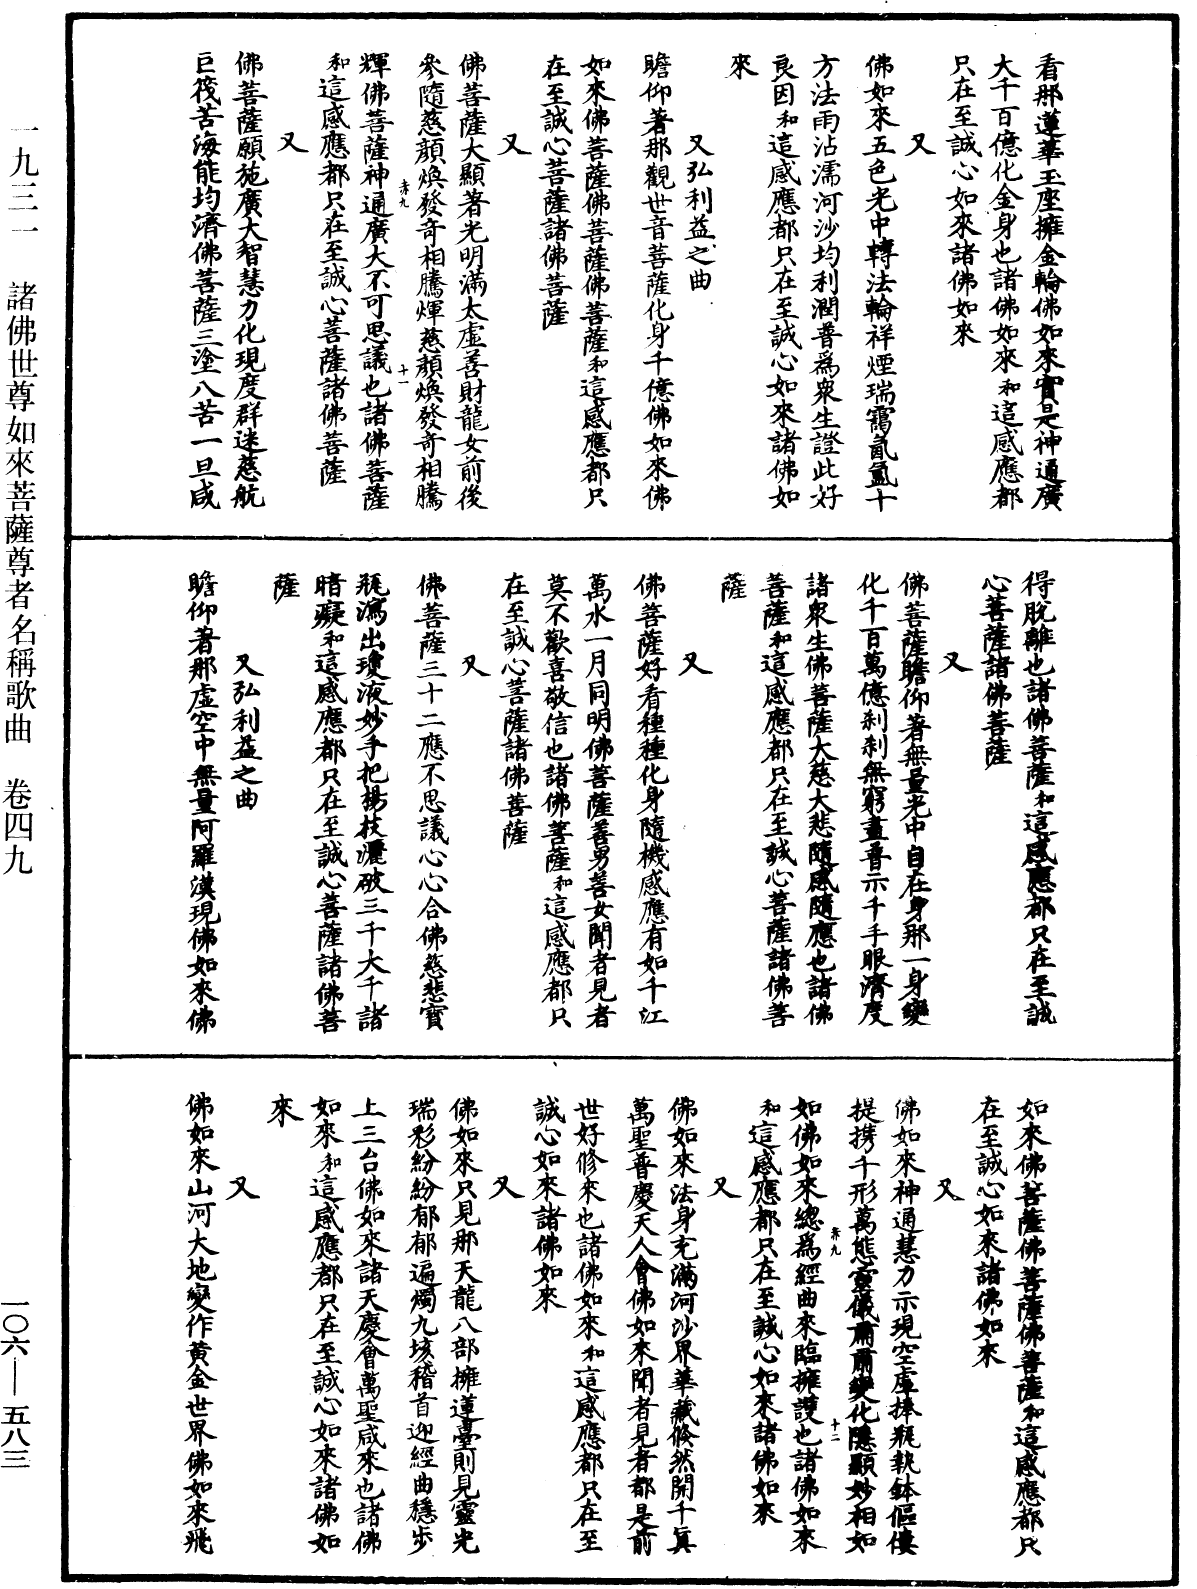 看那蓮華玉座擁金輪佛如來實是神通廣
大千百億化金身也諸佛如來和這感應都
只在至誠心如來諸佛如來
又
佛如來五色光中轉法輪祥煙瑞靄氤氳十
方法雨沾濡河沙均利潤普爲衆生證此好
良因和這感應都只在至誠心如來諸佛如
來
又弘利益之曲
瞻仰著那觀世音菩薩化身千億佛如來佛
如來佛菩薩佛菩薩佛菩薩和這感應都只
在至誠心菩薩諸佛菩薩
又
佛菩薩大顯著光明滿太虛善財龍女前後
參隨慈顏煥發奇相騰煇慈顏煥發奇相騰
輝佛菩薩神通廣大不可思議也諸佛菩薩
和這感應都只在至誠心菩薩諸佛菩薩
又
佛菩薩願施廣大智慧力化現度群迷慈航
巨筏苦海能均濟佛菩薩三塗八苦一旦咸
得脫離也諸佛菩薩和這感應都只在至誠
心菩薩諸佛菩薩
又
佛菩薩瞻仰著無量光中自在身那一身變
化千百萬億剎剎無窮盡普示千手眼濟度
諸衆生佛菩薩大慈大悲隨感隨應也諸佛
菩薩和這感應都只在至誠心菩薩諸佛菩
薩
又
佛菩薩好看種種化身隨機感應有如千江
萬水一月同明佛菩薩善男善女聞者見者
莫不歡喜敬信也諸佛菩薩和這感應都只
在至誠心菩薩諸佛菩薩
又
佛菩薩三十二應不思議心心合佛慈悲寶
瓶瀉出瓊液妙手把楊枝灑破三千大千諸
暗癡和這感應都只在至誠心菩薩諸佛菩
薩
又弘利益之曲
瞻仰著那虛空中無量阿羅漢現佛如來佛
如來佛菩薩佛菩薩佛菩薩和這感應都只
在至誠心如來諸佛如來
又
佛如來神通慧力示現空虛捧瓶執鉢傴僂
提攜千形萬態靈儀爾爾變化隱顯妙相如
如佛如來總爲經曲來臨擁護也諸佛如來
和這感應都只在至誠心如來諸佛如來
又
佛如來法身充滿河沙界華藏倏然開千眞
萬聖普慶天人會佛如來聞者見者都是前
世好修來也諸佛如來和這感應都只在至
誠心如來諸佛如來
又
佛如來只見那天龍八部擁蓮臺則見靈光
瑞彩紛紛郁郁遍燭九垓稽首迎經曲穩步
上三台佛如來諸天慶會萬聖咸來也諸佛
如來和這感應都只在至誠心如來諸佛如
來
又
佛如來山河大地變作黄金世界佛如來飛
赤九
十一
赤九
十二
一九三二　諸佛世尊如來菩薩尊者名稱歌曲　卷四九
一〇六—五八三